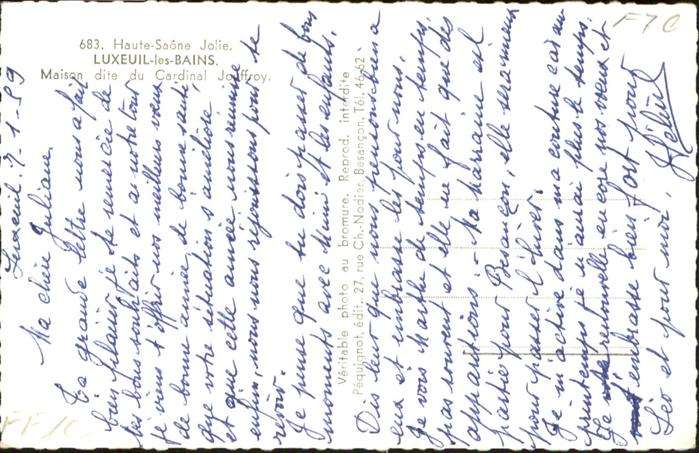 683. Haute-Saône Jolie.
LUXEUIL-les-BAINS.
Maison dite du Cardinal Jouffroy.
Véritable photo au bromure. Reprod. interdite
Péquignot, édit., 27, rue Ch.-Nodier, Besançon, Tél. 46-62
F7C
FF/C
Luxeuil. 7.1.59
Ma chère Juliane.
Ta grande lettre nous a fait
bien plaisir, je te remercie de
tes bons souhaits et à notre tour
je viens t'offrir nos meilleurs vœux
de bonne année, de bonne santé
que votre situation s'améliore
et que cette année nous réunisse
enfin, nous nous réjouissons pour te
revoir.
Je pense que tu dois passer de bons
moments avec Mimi et les enfants,
Dis leur que nous pensons bien à
eux et embrasse les pour nous.
Je vois Marthe de temps en temps,
pas souvent et elle ne fait que des
apparitions. Ma marraine est
partie pour Besançon, elle
pour passer l'hiver.
Je m'active dans ma couture car au
printemps je n'aurai plus le temps.
Je te renouvelle encore nos vœux et
t'embrasse bien fort pour
Léo et pour moi. Hélène